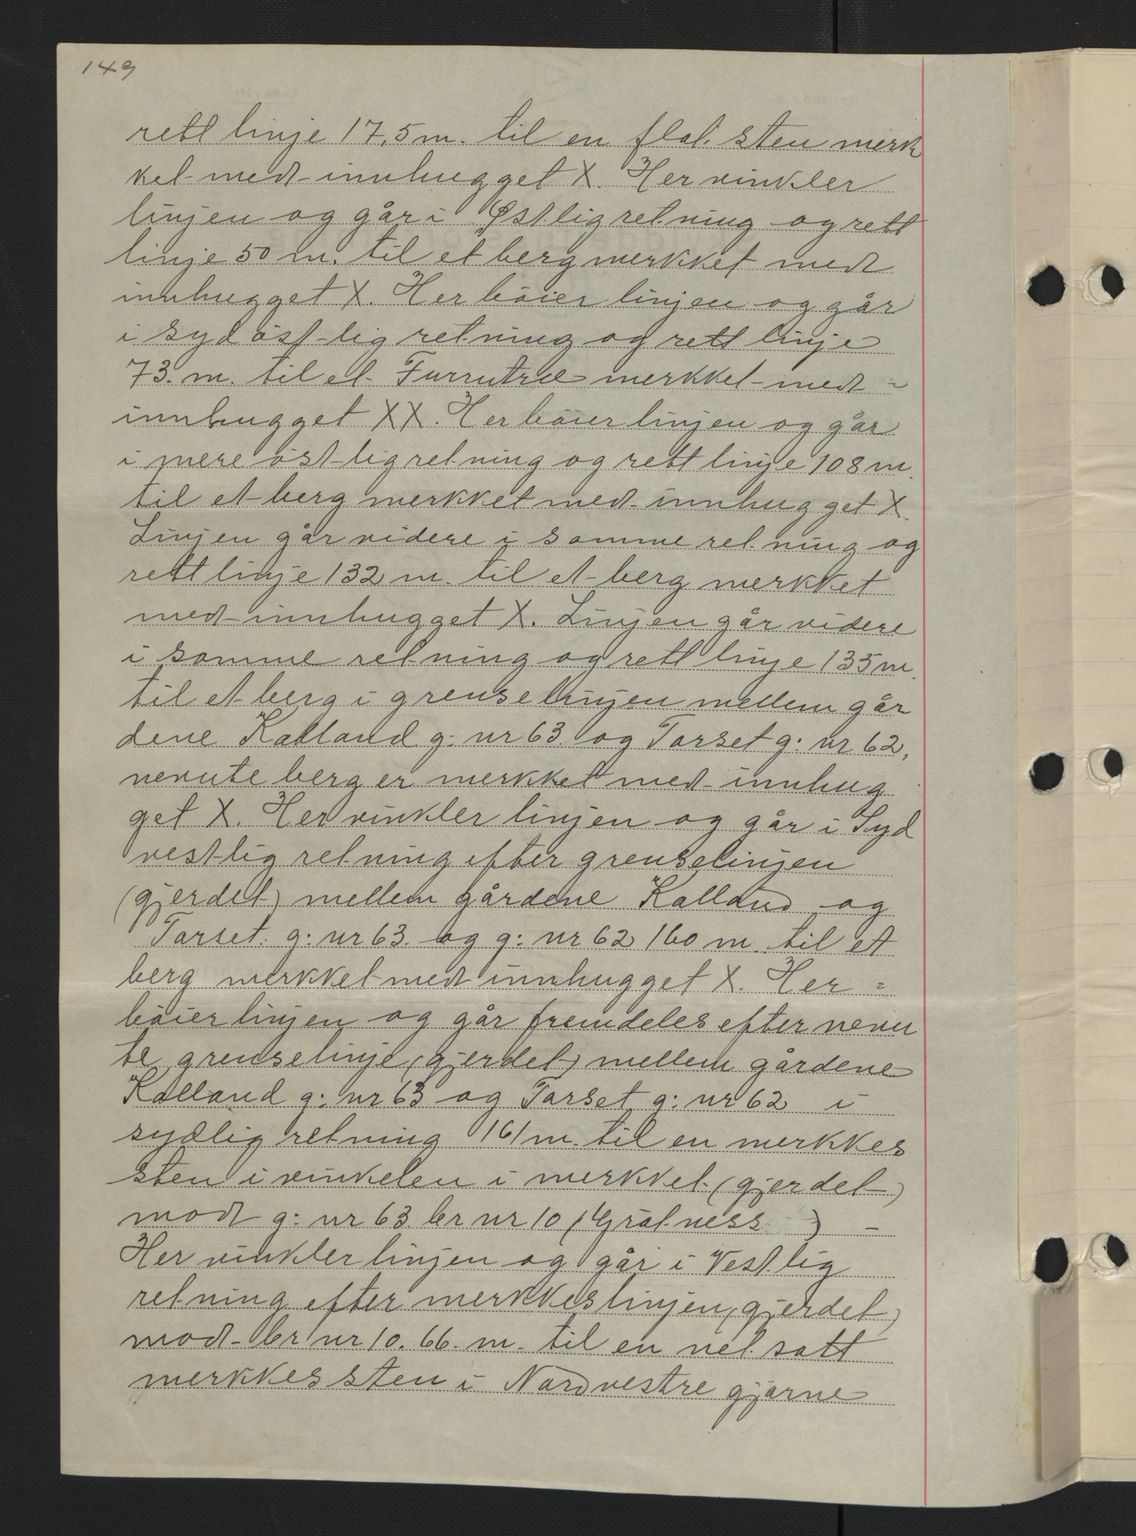 149
rett linje 17,5 m. til en flat sten merk
ket med innhugget X. Her vinkler
linjen og går i Østlig retning og rett
linje 50 m. til et berg merkket med
innhugget X. Her böier linjen og går
i syd öst-lig retning og rett linje
73. m. til et Furrutræ merkket med =
innhugget XX. Her böier linjen og går
i mere öst-lig retning og rett linje 108 m.
til et berg merkket med innhugget X.
Linjen går videre i samme retning og
rett linje 132 m. til et berg merkket
med innhugget X. Linjen går videre
i samme retning og rett linje 135 m.
til et berg i grenselinjen mellem går
dene Kalland g: nr 63. og Tarset g: nr 62,
nevnte berg er merkket med innhug
get X. Her vinkler linjen og går i Syd
vestlig retning efter grenselinjen
(gjerdet) mellem gårdene Kalland og
Tarset. g: nr 63. og g: nr 62 160 m. til et
berg merkket med innhugget X. Her =
böier linjen og går fremdeles efter nevn
te grenselinje (gjerdet) mellem gårdene
Kalland g: nr 63 og Tarset g: nr 62 i
sydlig retning 161 m. til en merkkes
sten i vinkelen i merkket (gjerdet)
mod g: nr 63. br nr 10 (Gratness ) -
Her vinkler linjen og går i Vestlig
retning efter merkkeslinjen (gjerdet)
mod br nr 10. 66. m. til en nel satt
merkkessten i Nordvestre gjørne